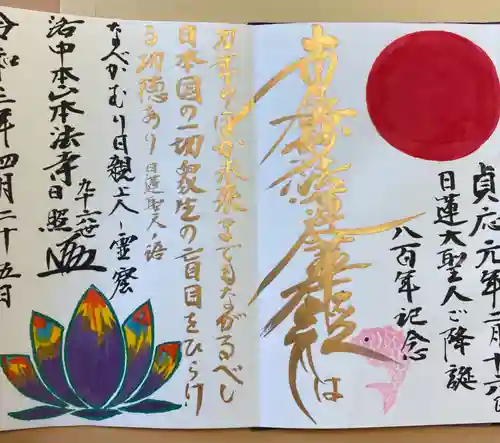 貞応元年二月十六日
日蓮大聖人ご降誕
八百年記念
南無妙法蓮華経は
万年のほか未来までもながるべし
日本国の一切衆生の盲目をひらける
功徳あり 日蓮聖人・語
なべかむり日親上人・霊窟
洛中本山本法寺 九十六世 日照
令和三年四月二十五日